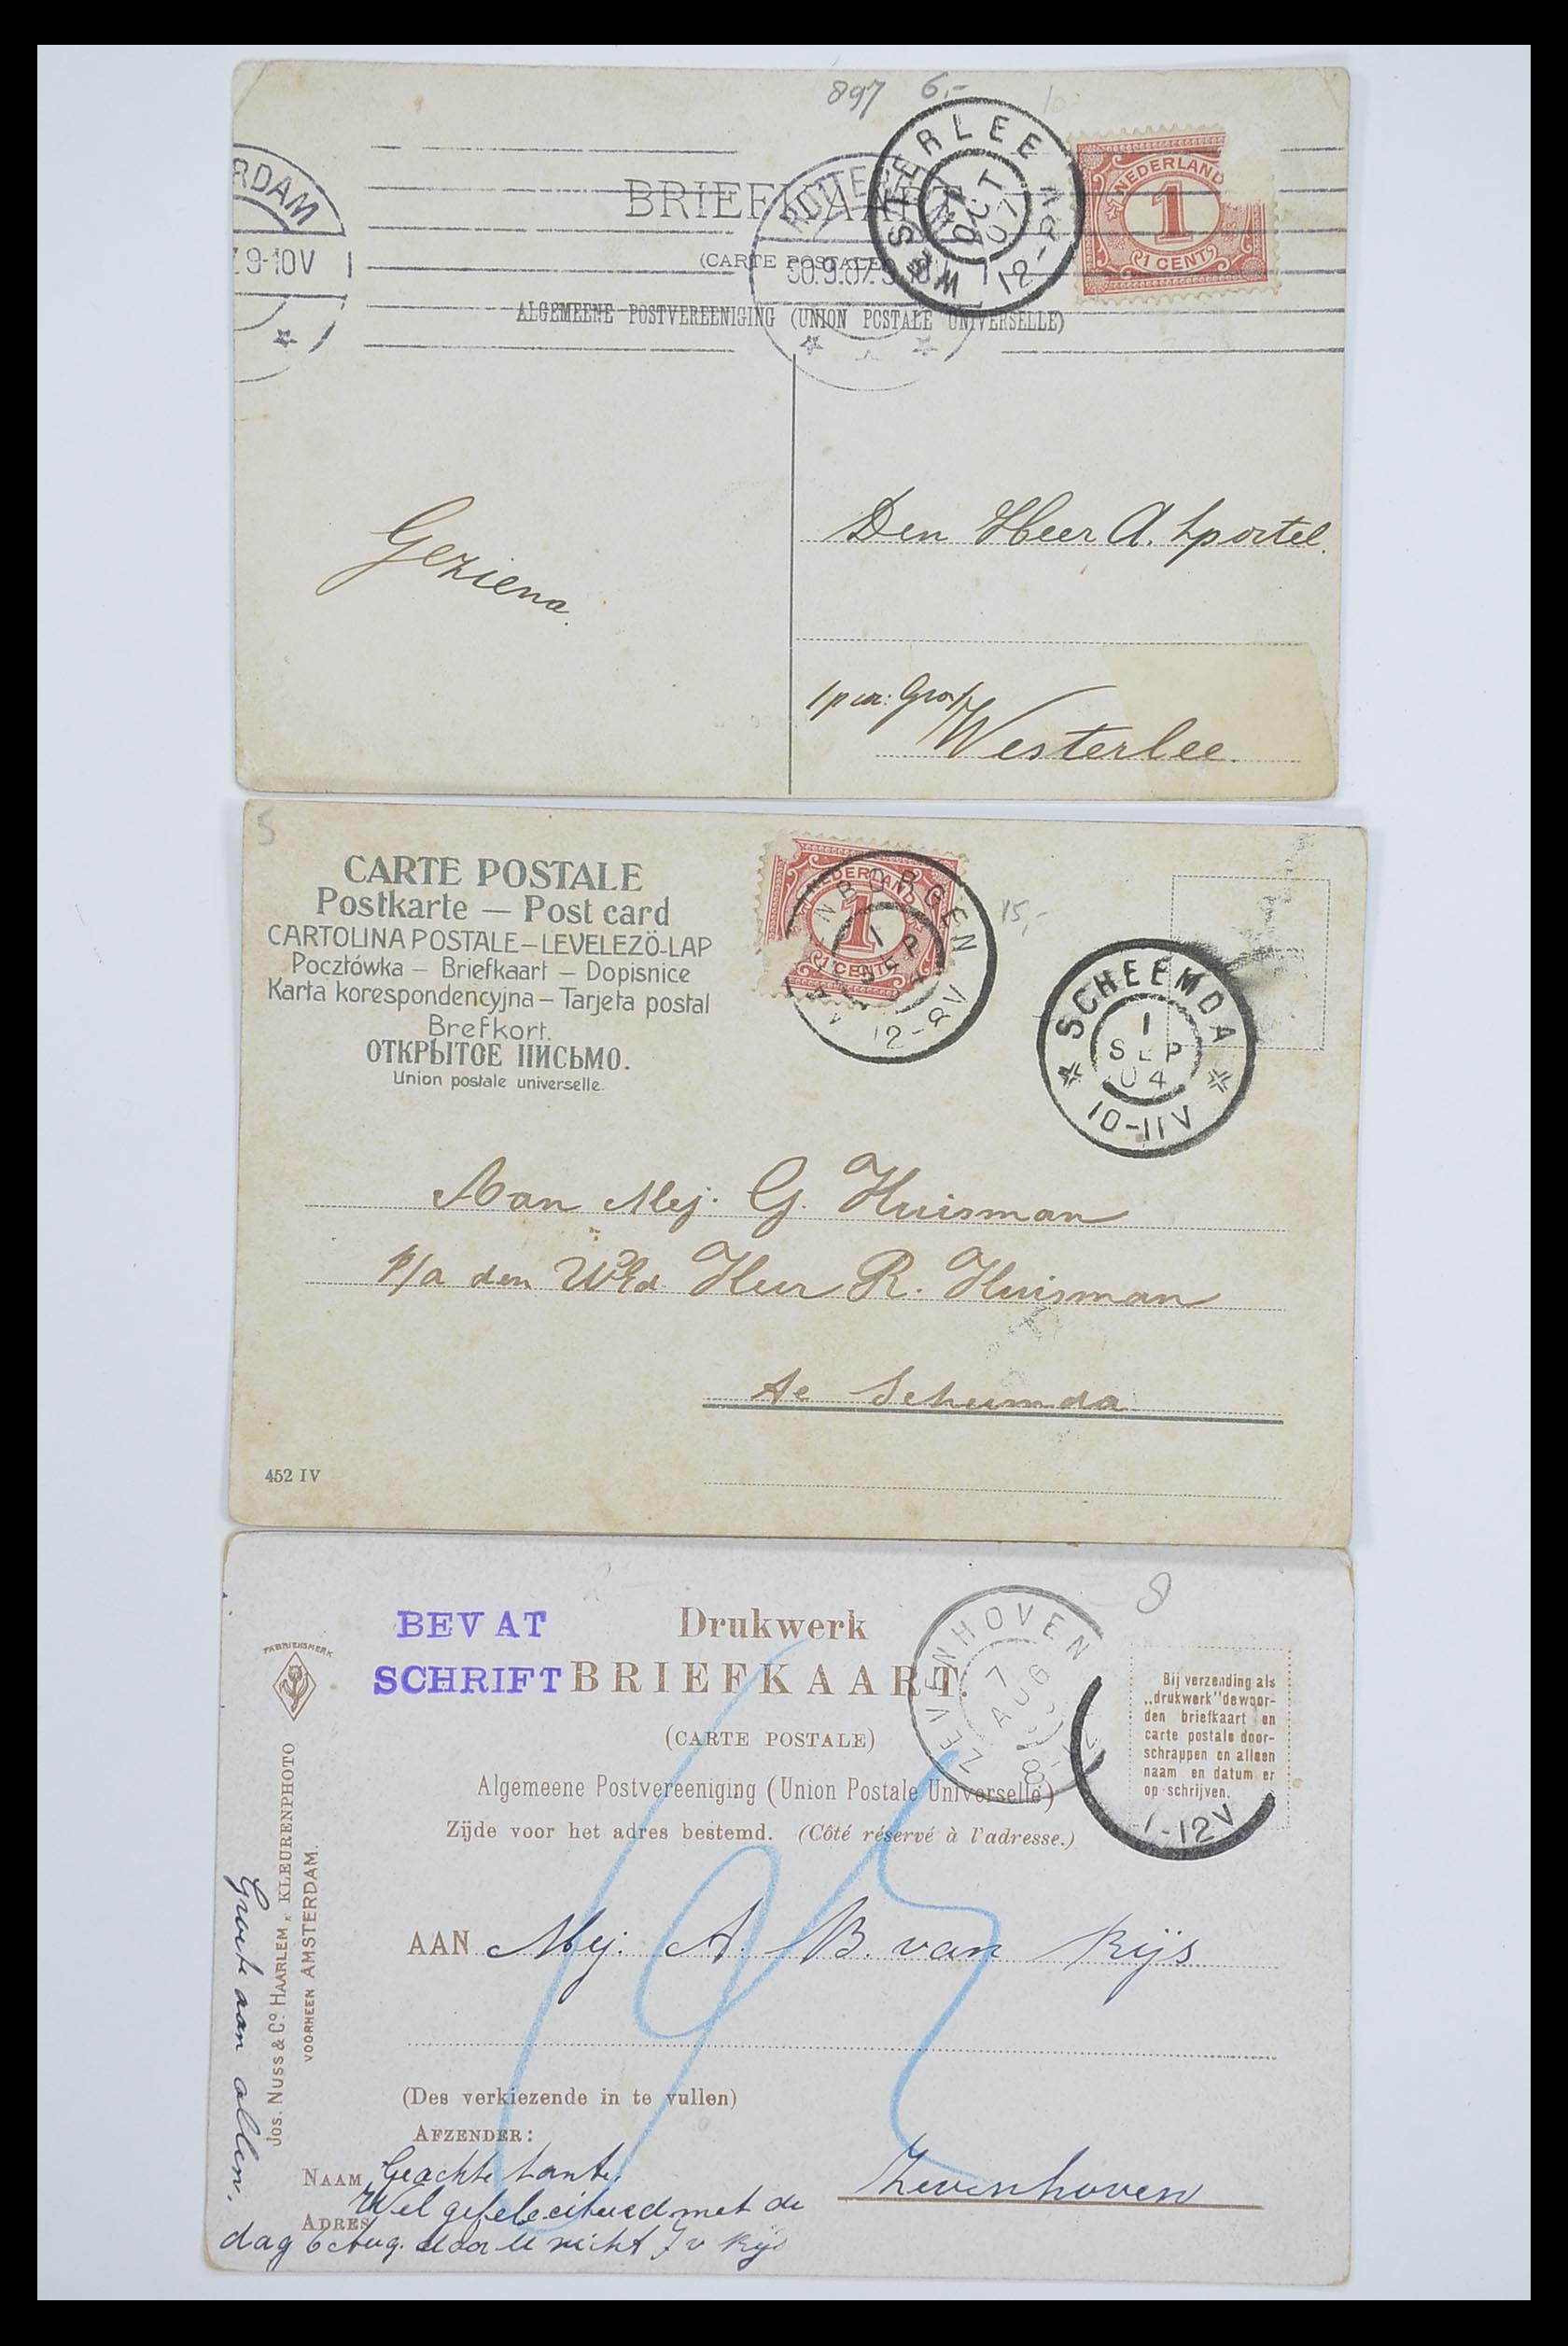 897 6,-
RDAM
9-10V
BRIEFKAART
(CARTE POSTALE)
ALGEMEENE POSTVEREENIGING (UNION POSTALE UNIVERSELLE)
ROTTE
30.9.07.
WESTERLEE
OCT
07
NEDERLAND
1
1 CENT
Geziena
Den Heer A. Sportel.
Westerlee.
5
CARTE POSTALE
Postkarte — Post card
CARTOLINA POSTALE–LEVELEZÖ-LAP
Pocztówka – Briefkaart – Dopisnice
Karta korespondencyjna – Tarjeta postal
Brefkort.
ОТКРЫТОЕ ПИСЬМО.
Union postale universelle.
NEDERLAND
1
1 CENT
NBORGEN
1 SEP
04
12-8V
15,-
SCHEEMDA
1
SEP
04
10-11V
Aan Mej. G. Huisman
p/a den WEd Heer R. Huisman
te Scheemda
452 IV
BEVAT
SCHRIFT
Drukwerk
BRIEFKAART.
(CARTE POSTALE)
Algemeene Postvereeniging (Union Postale Universelle)
Zijde voor het adres bestemd. (Côté réservé à l'adresse.)
ZEVENHOVEN
7
AUG
8-12
8
Bij verzending als
„drukwerk" de woor-
den briefkaart en
carte postale door-
schrappen en alleen
naam en datum er
op schrijven.
-12V
FABRIEKSMERK
Jos. Nuss & Co. HAARLEM, KLEURENPHOTO
VOORHEEN AMSTERDAM.
Groete aan allen.
AAN Mej. A. B. van Rijs
(Des verkiezende in te vullen)
AFZENDER:
NAAM Geachte tante,
Wel gefeleciteerd met de
ADRES
dag 6 Aug. door U nicht J v Rijs
Zevenhoven